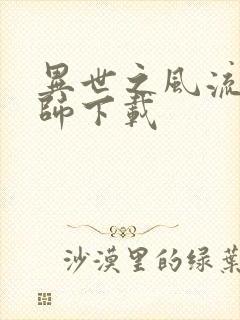 異世之風流
師下載
沙漠里的绿葉